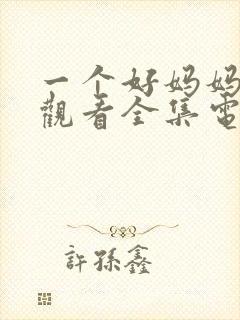 一个好妈妈
觀看全集電
許孫鑫